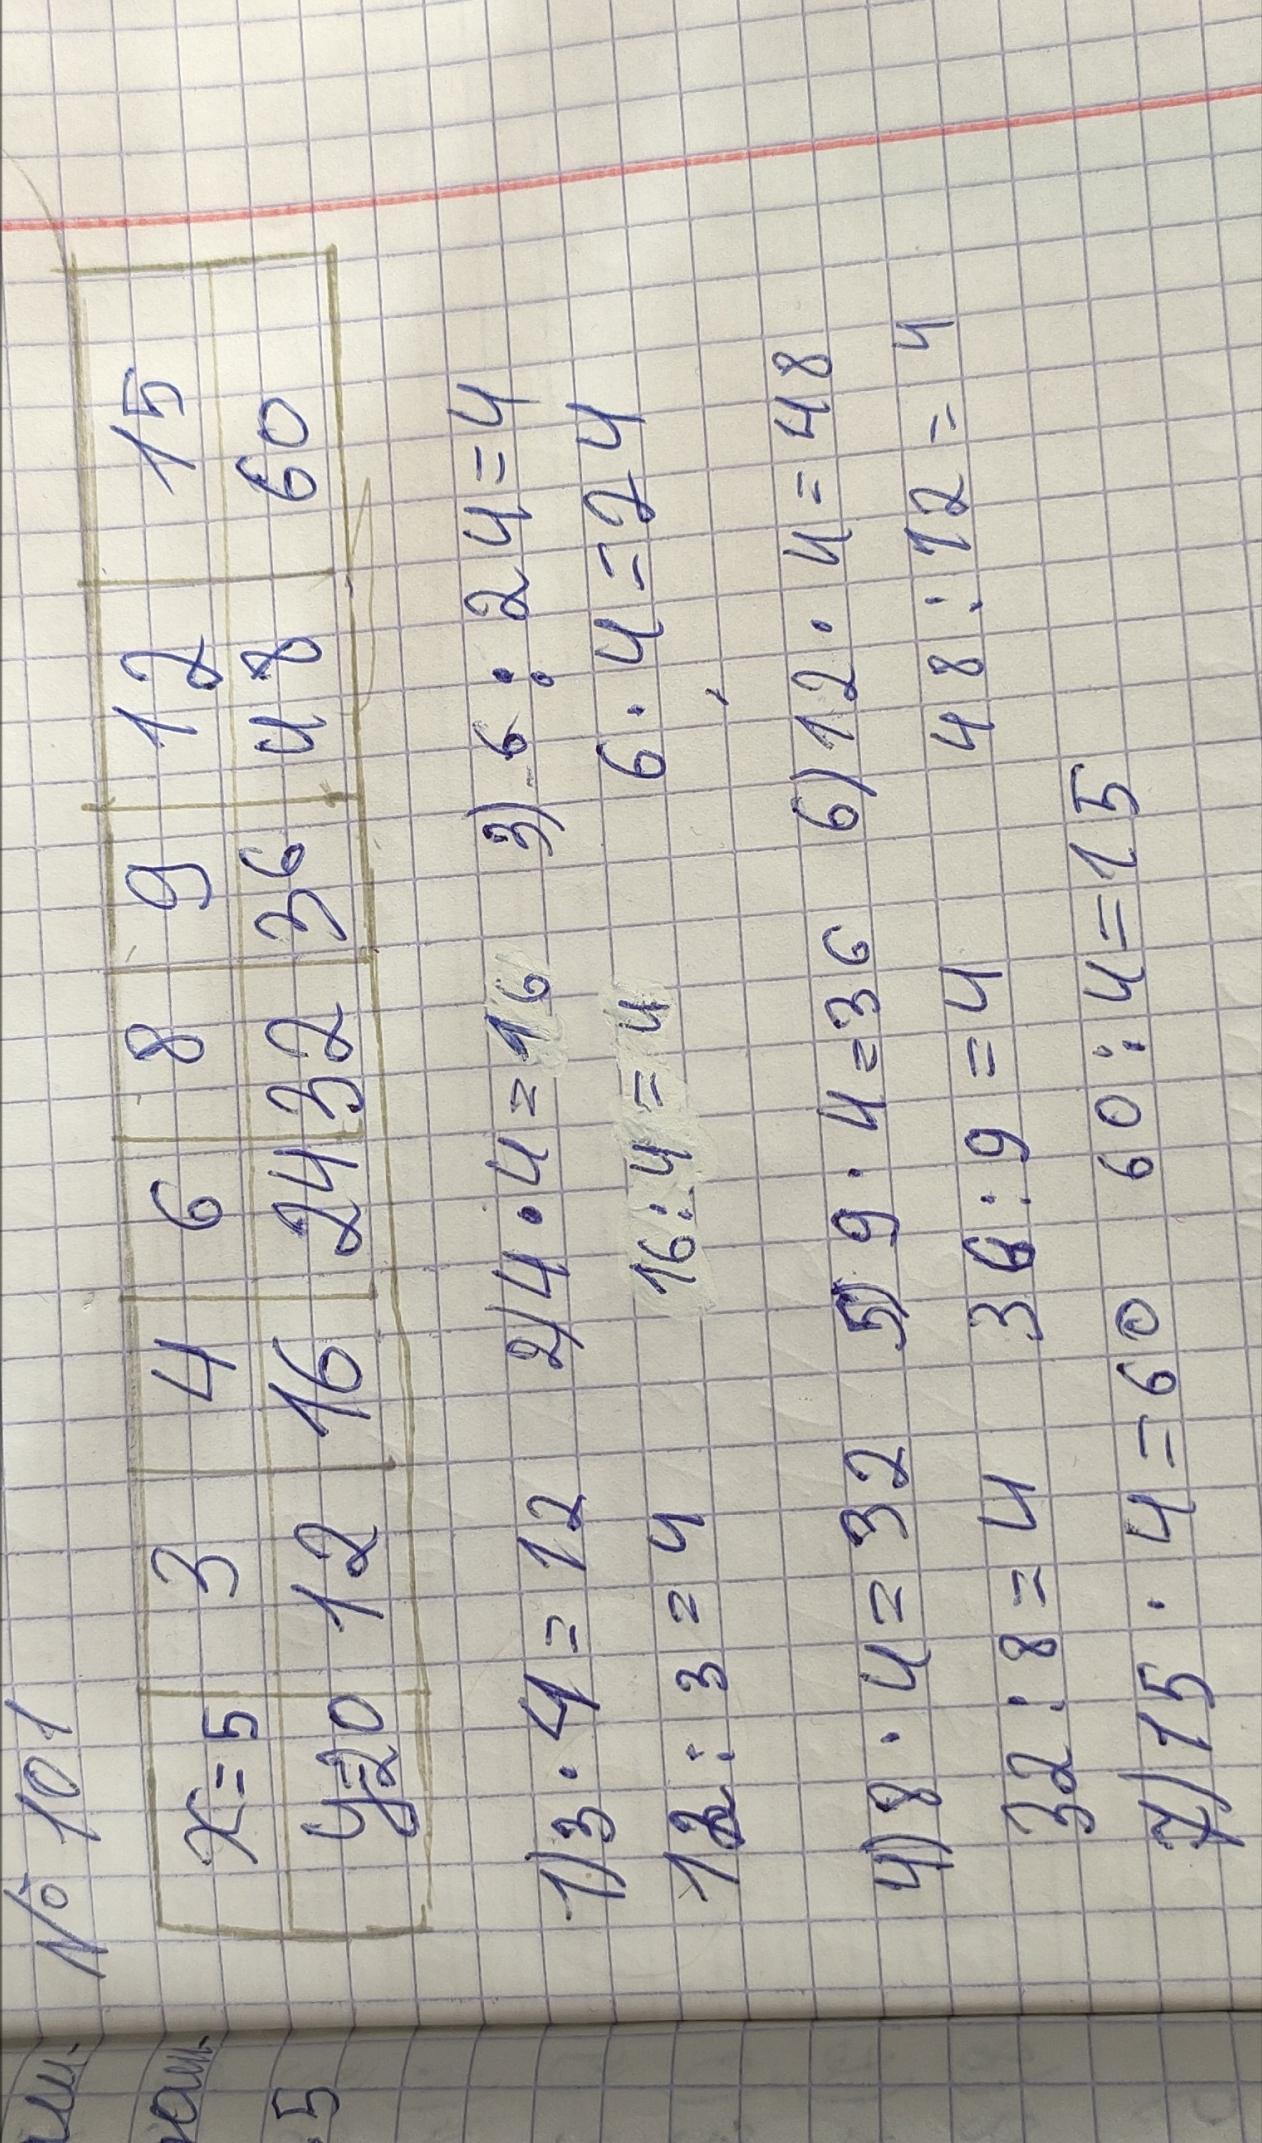 № 101
x=5 3 4 6 8 9 12 15
y=20 12 16 24 32 36 48 60
1) 3 · 4 = 12 2) 4 · 4 = 16 3) 6 : 24 = 4
12 : 3 = 4 16 : 4 = 4 6 · 4 = 24
4) 8 · 4 = 32 5) 9 · 4 = 36 6) 12 · 4 = 48
32 : 8 = 4 36 : 9 = 4 48 : 12 = 4
7) 15 · 4 = 60 60 : 4 = 15